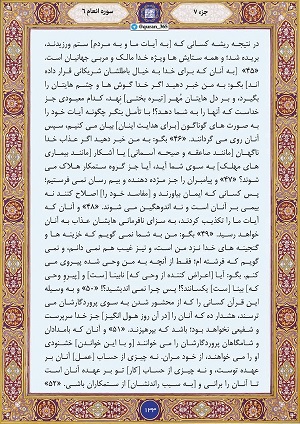 جزء ۷
سوره انعام ۶
@quran_365
در نتیجه ریشه کسانی که [به آیات ما و به مردم] ستم ورزیدند،
بریده شد؛ و همه ستایش ها ویژه خدا مالک و مربی جهانیان است.
«۴۵» [به آنان که برای خدا به خیال باطلشان شریکانی قرار داده
اند] بگو: به من خبر دهید اگر خدا گوش ها و چشم هایتان را
بگیرد، و بر دل هایتان مُهر [تیره بختی] نهد، کدام معبودی جز
خداست که آنها را به شما دهد؟! با تأمل بنگر چگونه آیات خود را
به صورت های گوناگون [برای هدایت اینان] بیان می کنیم، سپس
آنان روی می گردانند. «۴۶» بگو: به من خبر دهید اگر عذاب خدا
ناگهان [مانند صاعقه و صیحه آسمانی] یا آشکار [مانند بیماری
های مهلک] به سوی شما آید، آیا جز گروه ستمکار هلاک می
شوند؟ «۴۷» و پیامبران را جز مژده دهنده و بیم رسان نمی فرستیم؛
پس کسانی که ایمان بیاورند و [مفاسد خود را] اصلاح کنند نه
بیمی بر آنان است و نه اندوهگین می شوند. «۴۸» و آنان که
آیات ما را تکذیب کردند، به سزای نافرمانی هایشان عذاب به آنان
خواهد رسید. «۴۹» بگو: من به شما نمی گویم که خزینه ها و
گنجینه های خدا نزد من است، و نیز غیب هم نمی دانم، و نمی
گویم که فرشته ام؛ فقط از آنچه به من وحی شده پیروی می
کنم. بگو: آیا [اعراض کننده از وحی که] نابینا [ست] و [پیرو وحی
که] بینا [ست] یکسانند؟! پس چرا نمی اندیشید؟! «۵۰» و به وسیله
این قرآن کسانی را که از محشور شدن به سوی پروردگارشان می
ترسند، هشدار ده که آنان را [در آن روز هول انگیز] جز خدا سرپرست
و شفیعی نخواهد بود؛ باشد که بپرهیزند. «۵۱» و آنان که بامدادان
و شامگاهان پروردگارشان را می خوانند [و با این خواندن] خشنودی
او را می خواهند، از خود مران. نه چیزی از حساب [عمل] آنان بر
عهده توست، و نه چیزی از حساب [کار] تو بر عهده آنان است
تا آنان را برانی و [به سبب راندنشان] از ستمکاران باشی. «۵۲»
۱۳۳